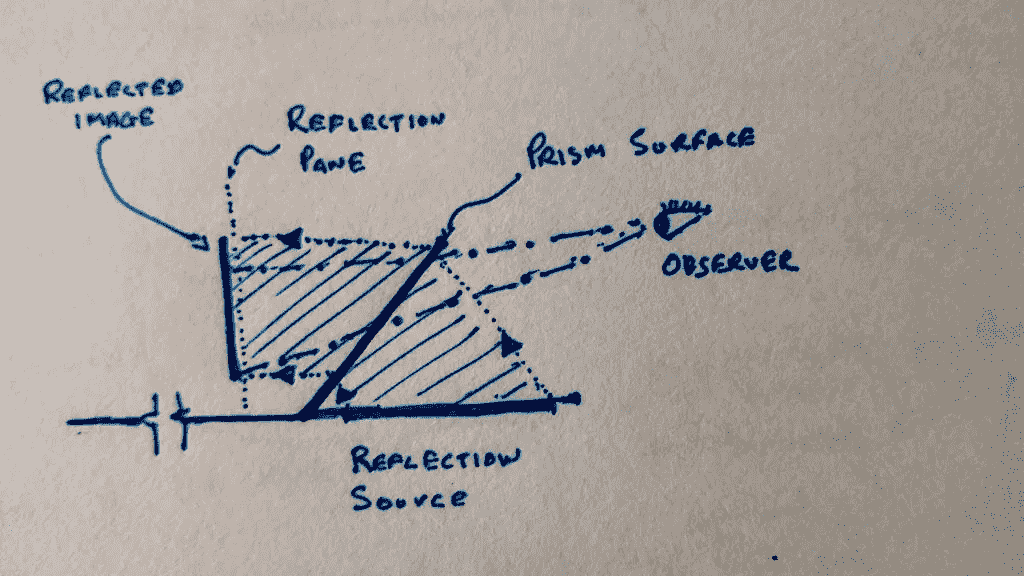 REFLECTED
IMAGE
REFLECTION
PANE
PRISM SURFACE
OBSERVER
REFLECTION
SOURCE